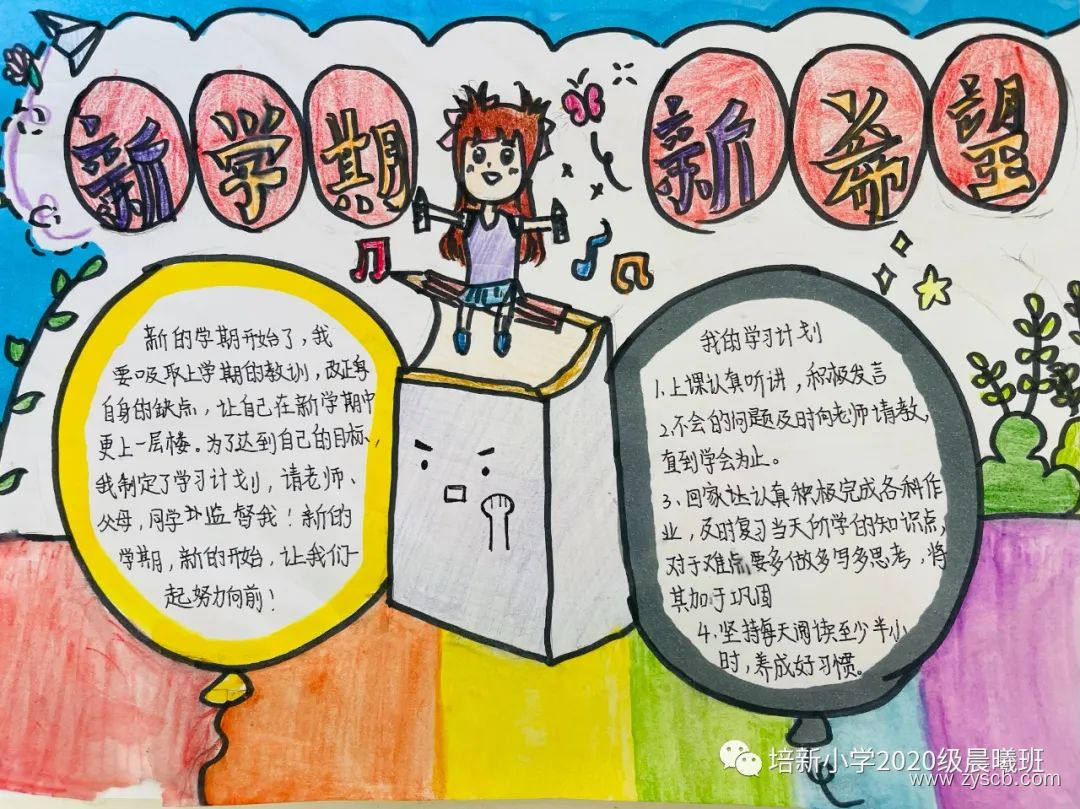 新学期 新希望
新的学期开始了，我
要吸取上学期的教训，改正身
自身的缺点，让自己在新学期中
更上一层楼。为了达到自己的目标，
我制定了学习计划，请老师、
父母，同学们监督我！新的
学期，新的开始，让我们一
起努力向前！
我的学习计划
1.上课认真听讲，积极发言
2.不会的问题及时向老师请教，
直到学会为止。
3.回家认真积极完成各科作
业，及时复习当天所学的知识点，
对于难点要多做多写多思考，将
其加于巩固
4.坚持每天阅读至少半小
时，养成好习惯。
培新小学2020级晨曦班
www.zyscb.com